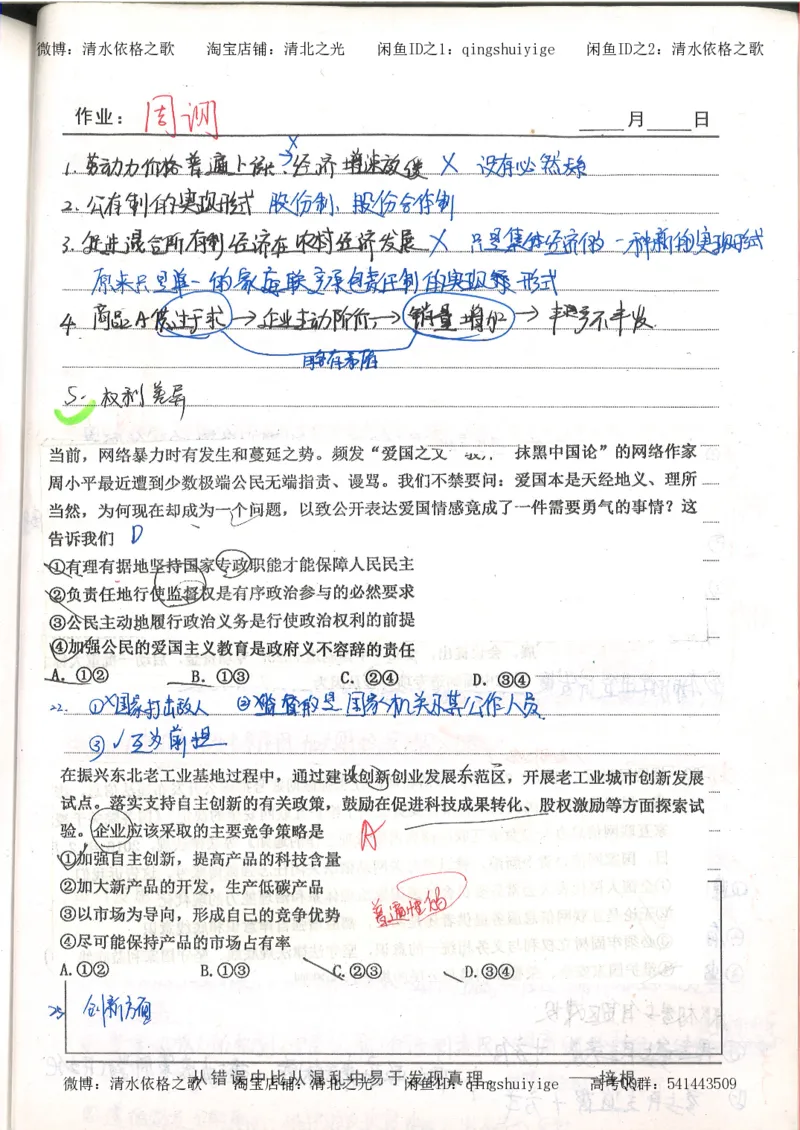 微博：清水依格之歌 淘宝店铺：清北之光 闲鱼ID之1：qingshuiyige 闲鱼ID之2：清水依格之歌
作业： 周调 月 日
1. 劳动力价格普遍上涨→经济增速放缓 X 没有必然联系
2. 公有制的实现形式 股份制、股份合作制
3. 促进混合所有制经济在农村经济发展 X 只是集体经济的一种新的实现形式
原来只是单一的家庭联产承包责任制的实现形式
4. 商品A供过于求→企业主动降价→销量增加→丰产不丰收
自有矛盾
5. 权利差异
当前，网络暴力时有发生和蔓延之势。频发“爱国之文 抹黑中国论”的网络作家
周小平最近遭到少数极端公民无端指责、谩骂。我们不禁要问：爱国本是天经地义、理所
当然，为何现在却成为一个问题，以致公开表达爱国情感竟成了一件需要勇气的事情？这
告诉我们 D
①有理有据地坚持国家专政职能才能保障人民民主
②负责任地行使监督权是有序政治参与的必然要求
③公民主动地履行政治义务是行使政治权利的前提
④加强公民的爱国主义教育是政府义不容辞的责任
A．①② B．①③ C．②④ D．③④
22. ①X国家打击敌人 ②X监督的是国家机关及其公作人员
③√互为前提
在振兴东北老工业基地过程中，通过建设创新创业发展示范区，开展老工业城市创新发展
试点。落实支持自主创新的有关政策，鼓励在促进科技成果转化、股权激励等方面探索试
验。企业应该采取的主要竞争策略是 A
①加强自主创新，提高产品的科技含量
②加大新产品的开发，生产低碳产品
③以市场为导向，形成自己的竞争优势
④尽可能保持产品的市场占有率
普遍性
A.①② B.①③ C.②③ D.③④
25 创新方面
从错误中比从混乱中易于发现真理 ——培根
微博：清水依格之歌 淘宝店铺：清北之光 闲鱼ID之1：qingshuiyige 高考QQ群：541443509